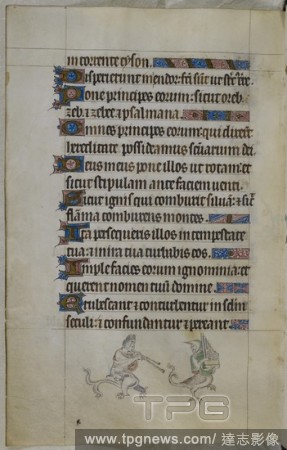 in torrente cyson.
Disperierunt in endor: fci sūt ut stcꝰ tre.
Pone principes eorum: sicut oreb ⁊
zeb. ⁊ zebee ⁊ psalmana.
Omnes principes eorum: qui dixert̄
hereditate possideamus sc̄uarium dei.
Deus meus pone illos ut rotam: et
sicut stipulam ante faciem uenti.
Sicut ignis qui comburit siluā: ⁊ sic̄
flāma comburens montes.
Ita persequeris illos in tempestate
tua: ⁊ in ira tua turbabis eos.
Imple facies eorum ignominia: et
querent nomen tuū domine.
Erubescant ⁊ conturbentur in sclm
seculi: ⁊ confundantur ⁊ pereant.
TPG
www.tpgnews.com / 達志影像